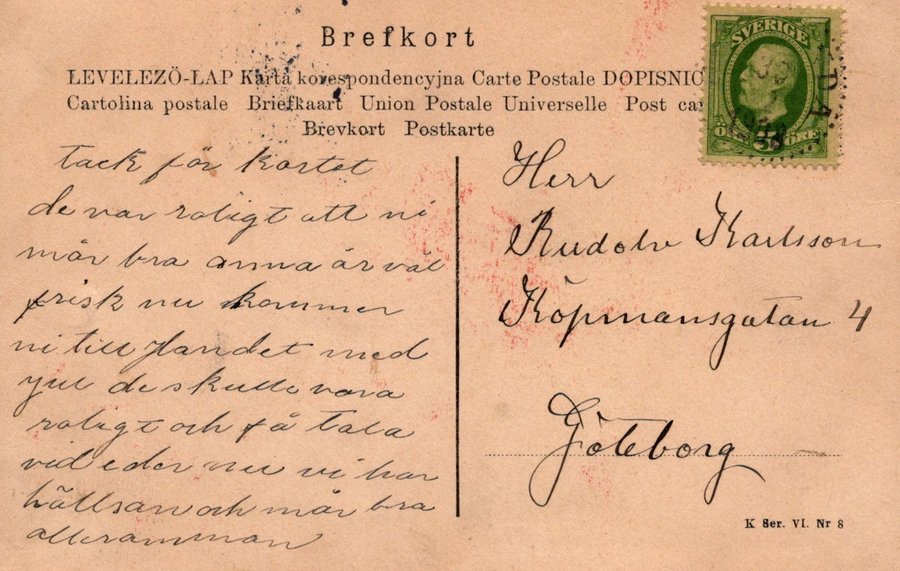 Brefkort
LEVELEZÖ-LAP Karta korespondencyjna Carte Postale DOPISNIC
Cartolina postale Briefkaart Union Postale Universelle Post car
Brevkort Postkarte
SVERIGE
ÖRE
tack för kortet
de var roligt att ni
mår bra anna är väl
frisk nu kommer
ni till landet med
jull de skulle vara
roligt och få tala
vid eder nu vi har
hällsan och mår bra
allesamman
Herr
Rudolv Karlsson
Köpmansgatan 4
Göteborg
K Ser. VI. Nr 8